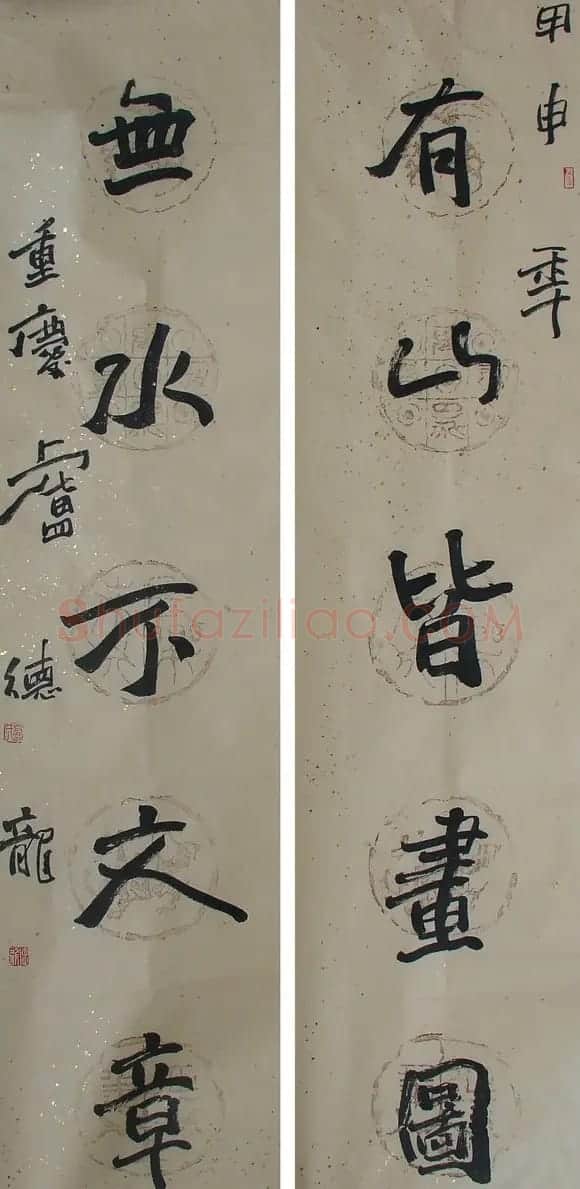 甲申年
有山皆畫圖
無水不文章
重慶盧德龍
Shufaziliao.COM